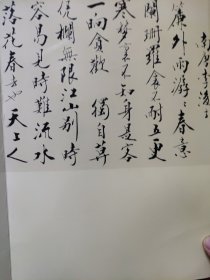 南唐李後主
簾外雨潺々春意
闌珊羅衾不耐五更
寒夢裏不知身是客
一晌貪歡 獨自莫
憑欄無限江山別時
容易見時難流水
落花春去也天上人